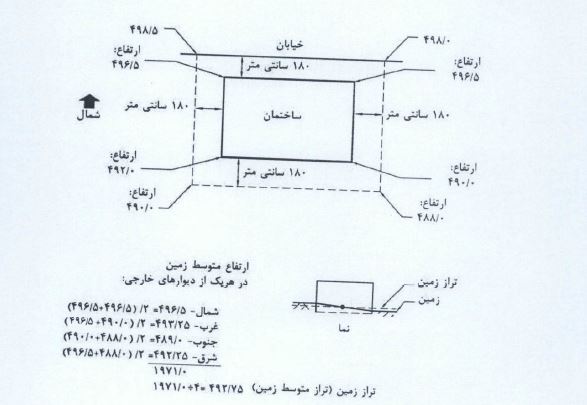 ۴۹۸/۵
خیابان
۴۹۸/۰
ارتفاع:
۴۹۶/۵
۱۸۰ سانتی متر
ارتفاع:
۴۹۶/۵
شمال
۱۸۰ سانتی متر
ساختمان
۱۸۰ سانتی متر
ارتفاع:
۴۹۲/۰
۱۸۰ سانتی متر
ارتفاع:
۴۹۰/۰
ارتفاع:
۴۹۰/۰
ارتفاع:
۴۸۸/۰
ارتفاع متوسط زمین
در هریک از دیوارهای خارجی:
شمال- ۴۹۶/۵= ۲/ (۴۹۶/۵+۴۹۶/۵)
غرب- ۴۹۳/۲۵= ۲/ (۴۹۶/۵+۴۹۰/۰)
جنوب- ۴۸۹/۰= ۲/ (۴۹۰/۰+۴۸۸/۰)
شرق- ۴۹۲/۲۵= ۲/ (۴۹۶/۵+۴۸۸/۰)
۱۹۷۱/۰
تراز زمین (تراز متوسط زمین) ۴۹۲/۷۵ =۴÷۱۹۷۱/۰
تراز زمین
زمین
نما